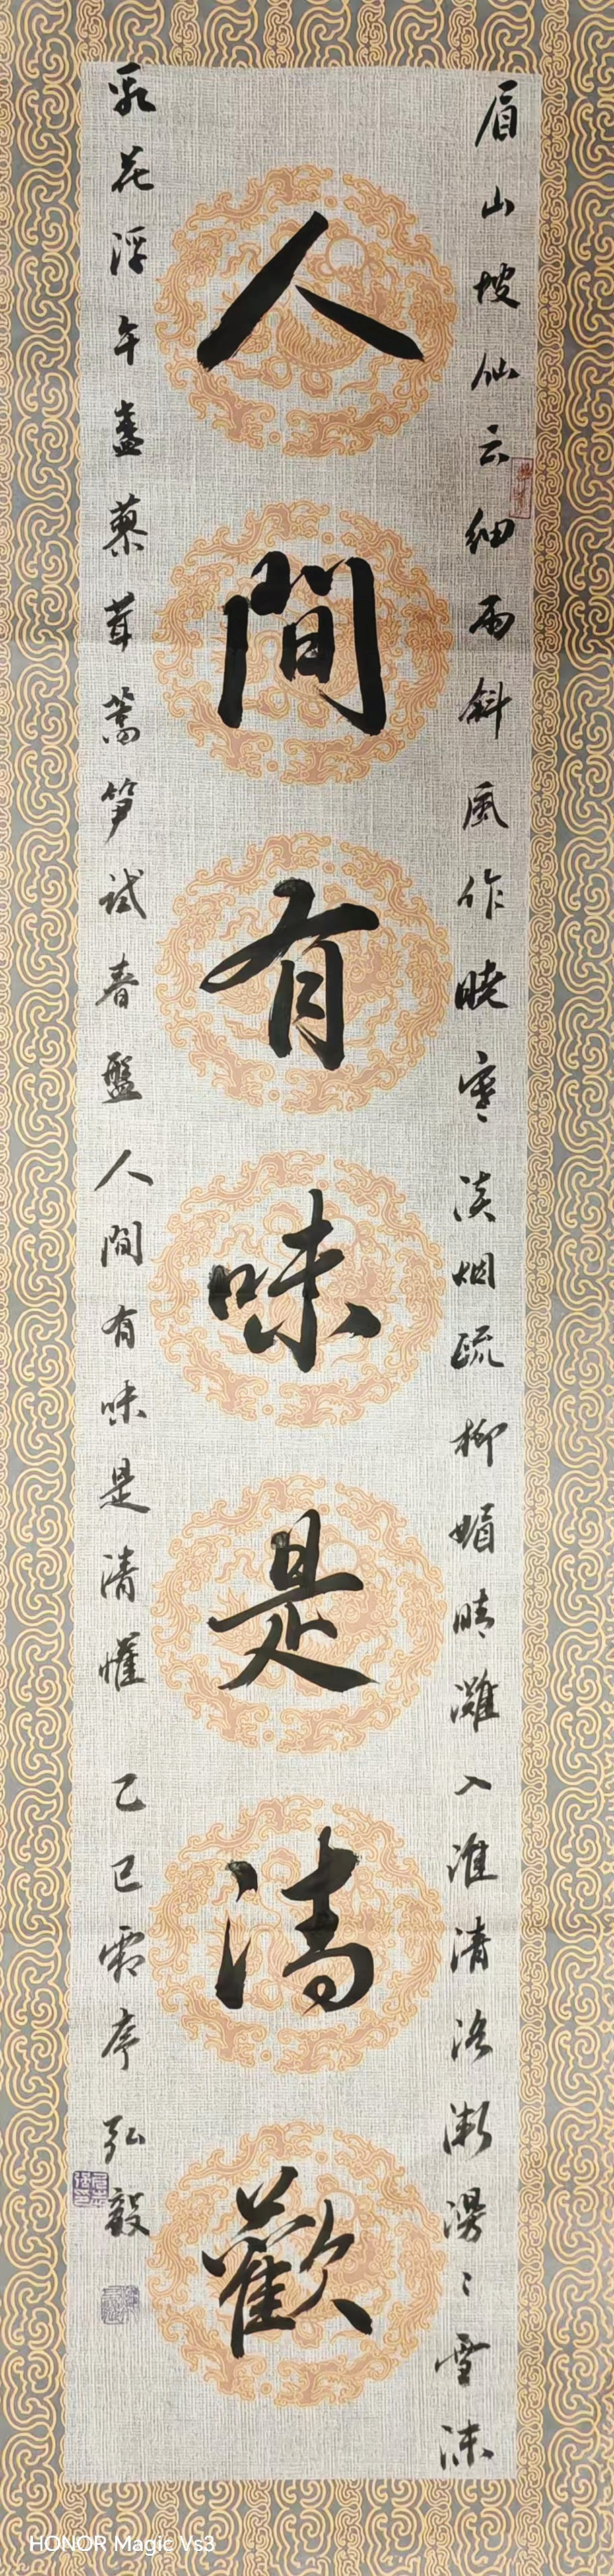 人間有味是清歡
眉山坡仙云細雨斜風作曉寒淡烟疏柳媚晴灘入淮清洛漸漫〻雪沫
乳花浮午盞蓼茸蒿笋試春盤人間有味是清懽 乙巳霜序 弘毅
HONOR Magic Vs3